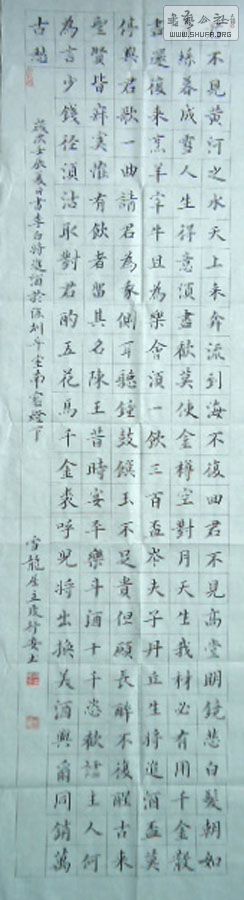 不見黃河之水天上來奔流到海不復回君不見高堂明鏡悲白髮朝如
絲暮成雪人生得意須盡歡莫使金樽空對月天生我材必有用千金散
盡還復來烹羊宰牛且為樂會須一飲三百盃岑夫子丹丘生將進酒盃莫
停與君歌一曲請君為我側耳聽鐘鼓饌玉不足貴但願長醉不復醒古來
聖賢皆寂寞惟有飲者留其名陳王昔時宴平樂斗酒十千恣歡謔主人何
為言少錢徑須沽取對君酌五花馬千金裘呼兒將出換美酒與爾同銷萬
古愁
歲次壬辰春日書李白將進酒於深圳南窗燈下
雪龍居主
WWW.SHUFA.ORG